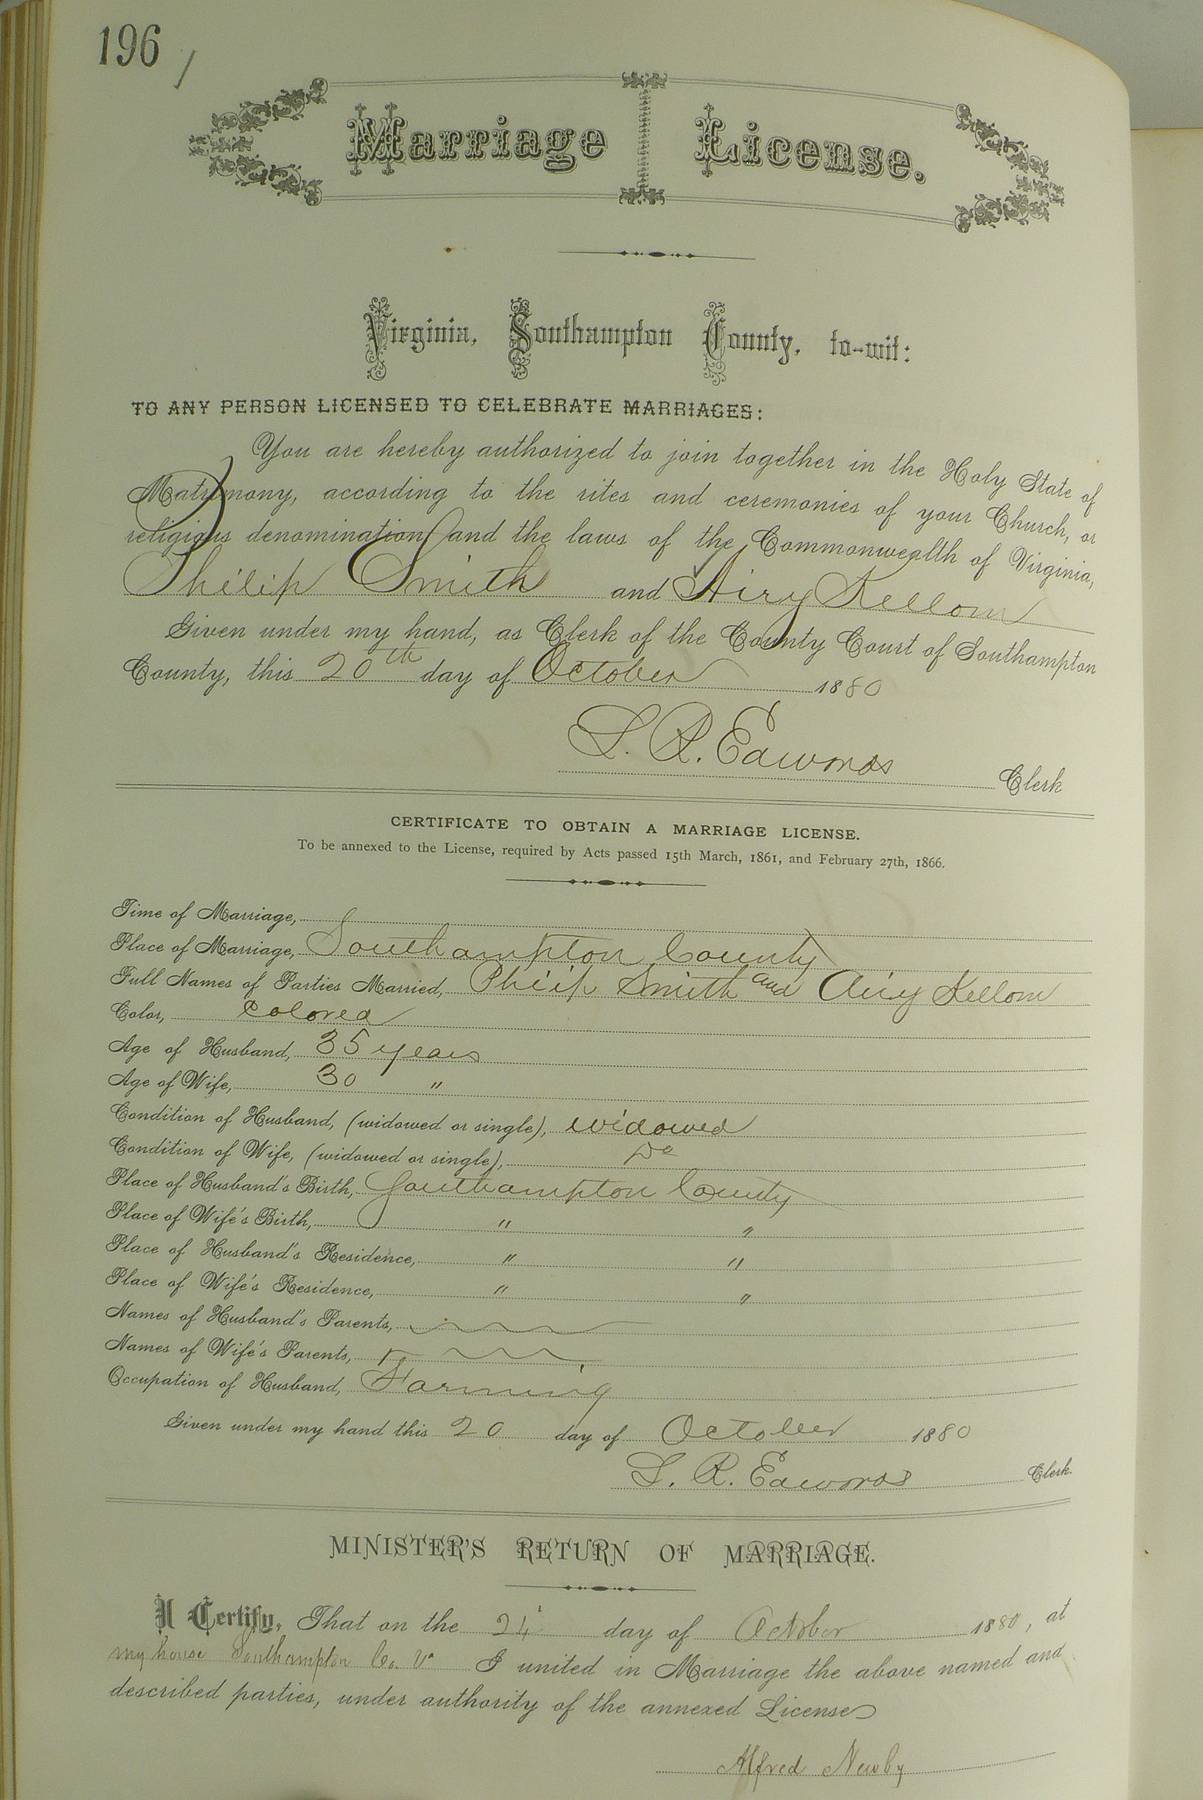 196
Marriage License.
Virginia, Southampton County, to-wit:
TO ANY PERSON LICENSED TO CELEBRATE MARRIAGES:
You are hereby authorized to join together in the Holy State of
Matrimony, according to the rites and ceremonies of your Church, or
religious denomination, and the laws of the Commonwealth of Virginia,
Philip Smith and Airy Kellom
Given under my hand, as Clerk of the County Court of Southampton
County, this 20th day of October 1880
L. R. Edwards Clerk
CERTIFICATE TO OBTAIN A MARRIAGE LICENSE.
To be annexed to the License, required by Acts passed 15th March, 1861, and February 27th, 1866.
Time of Marriage,
Place of Marriage, Southampton County
Full Names of Parties Married, Philip Smith and Airy Kellom
Color, Colored
Age of Husband, 35 years
Age of Wife, 30 "
Condition of Husband, (widowed or single), widowed
Condition of Wife, (widowed or single), Do
Place of Husband's Birth, Southampton County
Place of Wife's Birth, " "
Place of Husband's Residence, " "
Place of Wife's Residence, " "
Names of Husband's Parents,
Names of Wife's Parents,
Occupation of Husband, Farming
Given under my hand this 20 day of October 1880
L. R. Edwards Clerk
MINISTER'S RETURN OF MARRIAGE.
I Certify, That on the 24 day of October 1880, at
my house Southampton Co. Va I united in Marriage the above named and
described parties, under authority of the annexed License
Alfred Newby